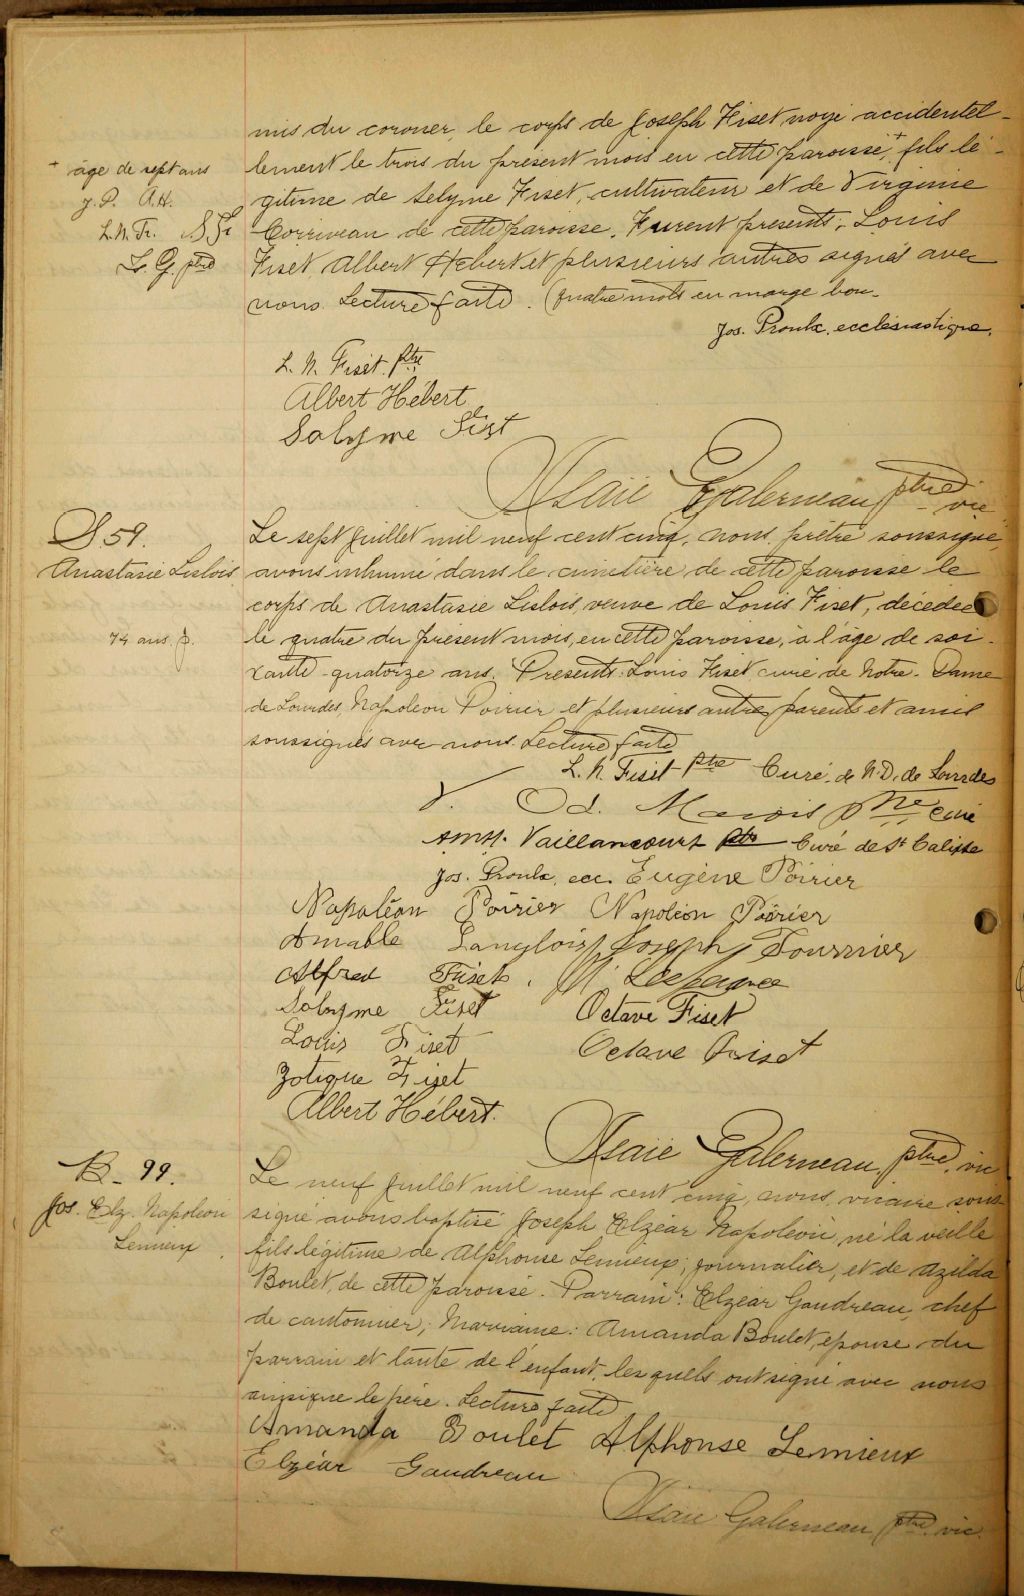 mis du coroner, le corps de Joseph Fiset noyé accidentel-
+ âge de sept ans
lement le trois du présent mois en cette paroisse,+ fils lé-
J.P. A.H.
gitime de Selyme Fiset, cultivateur et de Virginie
L.N.Fr. S.Fi
Corriveau de cette paroisse. Furent présents: Louis
I. G. ptre
Fiset, Albert Hébert et plusieurs autres signés avec
nous. Lecture faite. (quatre mots en marge bon.
Jos. Proulx, ecclésiastique.
L. N. Fiset. ptre
Albert Hébert
Solyme Fiset
Isaïe Galerneau, ptre vic
S. 59.
Le sept Juillet mil neuf cent cinq, nous, prêtre soussigné,
Anastasie Lislois
avons inhumé dans le cimetière de cette paroisse le
corps de Anastasie Lislois, veuve de Louis Fiset, décédée
74 ans. p.
le quatre du présent mois, en cette paroisse, à l'âge de soi-
xante-quatorze ans. Présents: Louis Fiset curé de Notre-Dame
de Lourdes, Napoléon Poirier et plusieurs autres parents et amis
soussignés avec nous. Lecture faite
L. N. Fiset ptre Curé de N.D. de Lourdes
Od. Marois ptre curé
Am. Vaillancourt ptre Curé de St Calixte
Jos. Proulx, ecc. Eugène Poirier
Napoléon Poirier Napoléon Poirier
Amable Langlois Joseph Fournier
Alfred Fiset
Solyme Fiset Octave Fiset
Louis Fiset Octave Friset
Zotique Fiset
Albert Hébert.
Isaïe Galerneau, ptre, vic
B_ 99.
Le neuf Juillet mil neuf cent cinq, nous, vicaire sous-
Jos. Elz. Napoléon
signé avons baptisé Joseph Elzéar Napoléon, né la veille
Lemieux
fils légitime de Alphonse Lemieux, journalier, et de Azilda
Boulet, de cette paroisse. Parrain: Elzéar Gaudreau, chef
de cantonnier; Marraine: Amanda Boulet, épouse du
parrain et tante de l'enfant, lesquels ont signé avec nous
ainsi que le père. Lecture faite
Amanda Boulet Alphonse Lemieux
Elzéar Gaudreau
Isaïe Galerneau, ptre, vic.